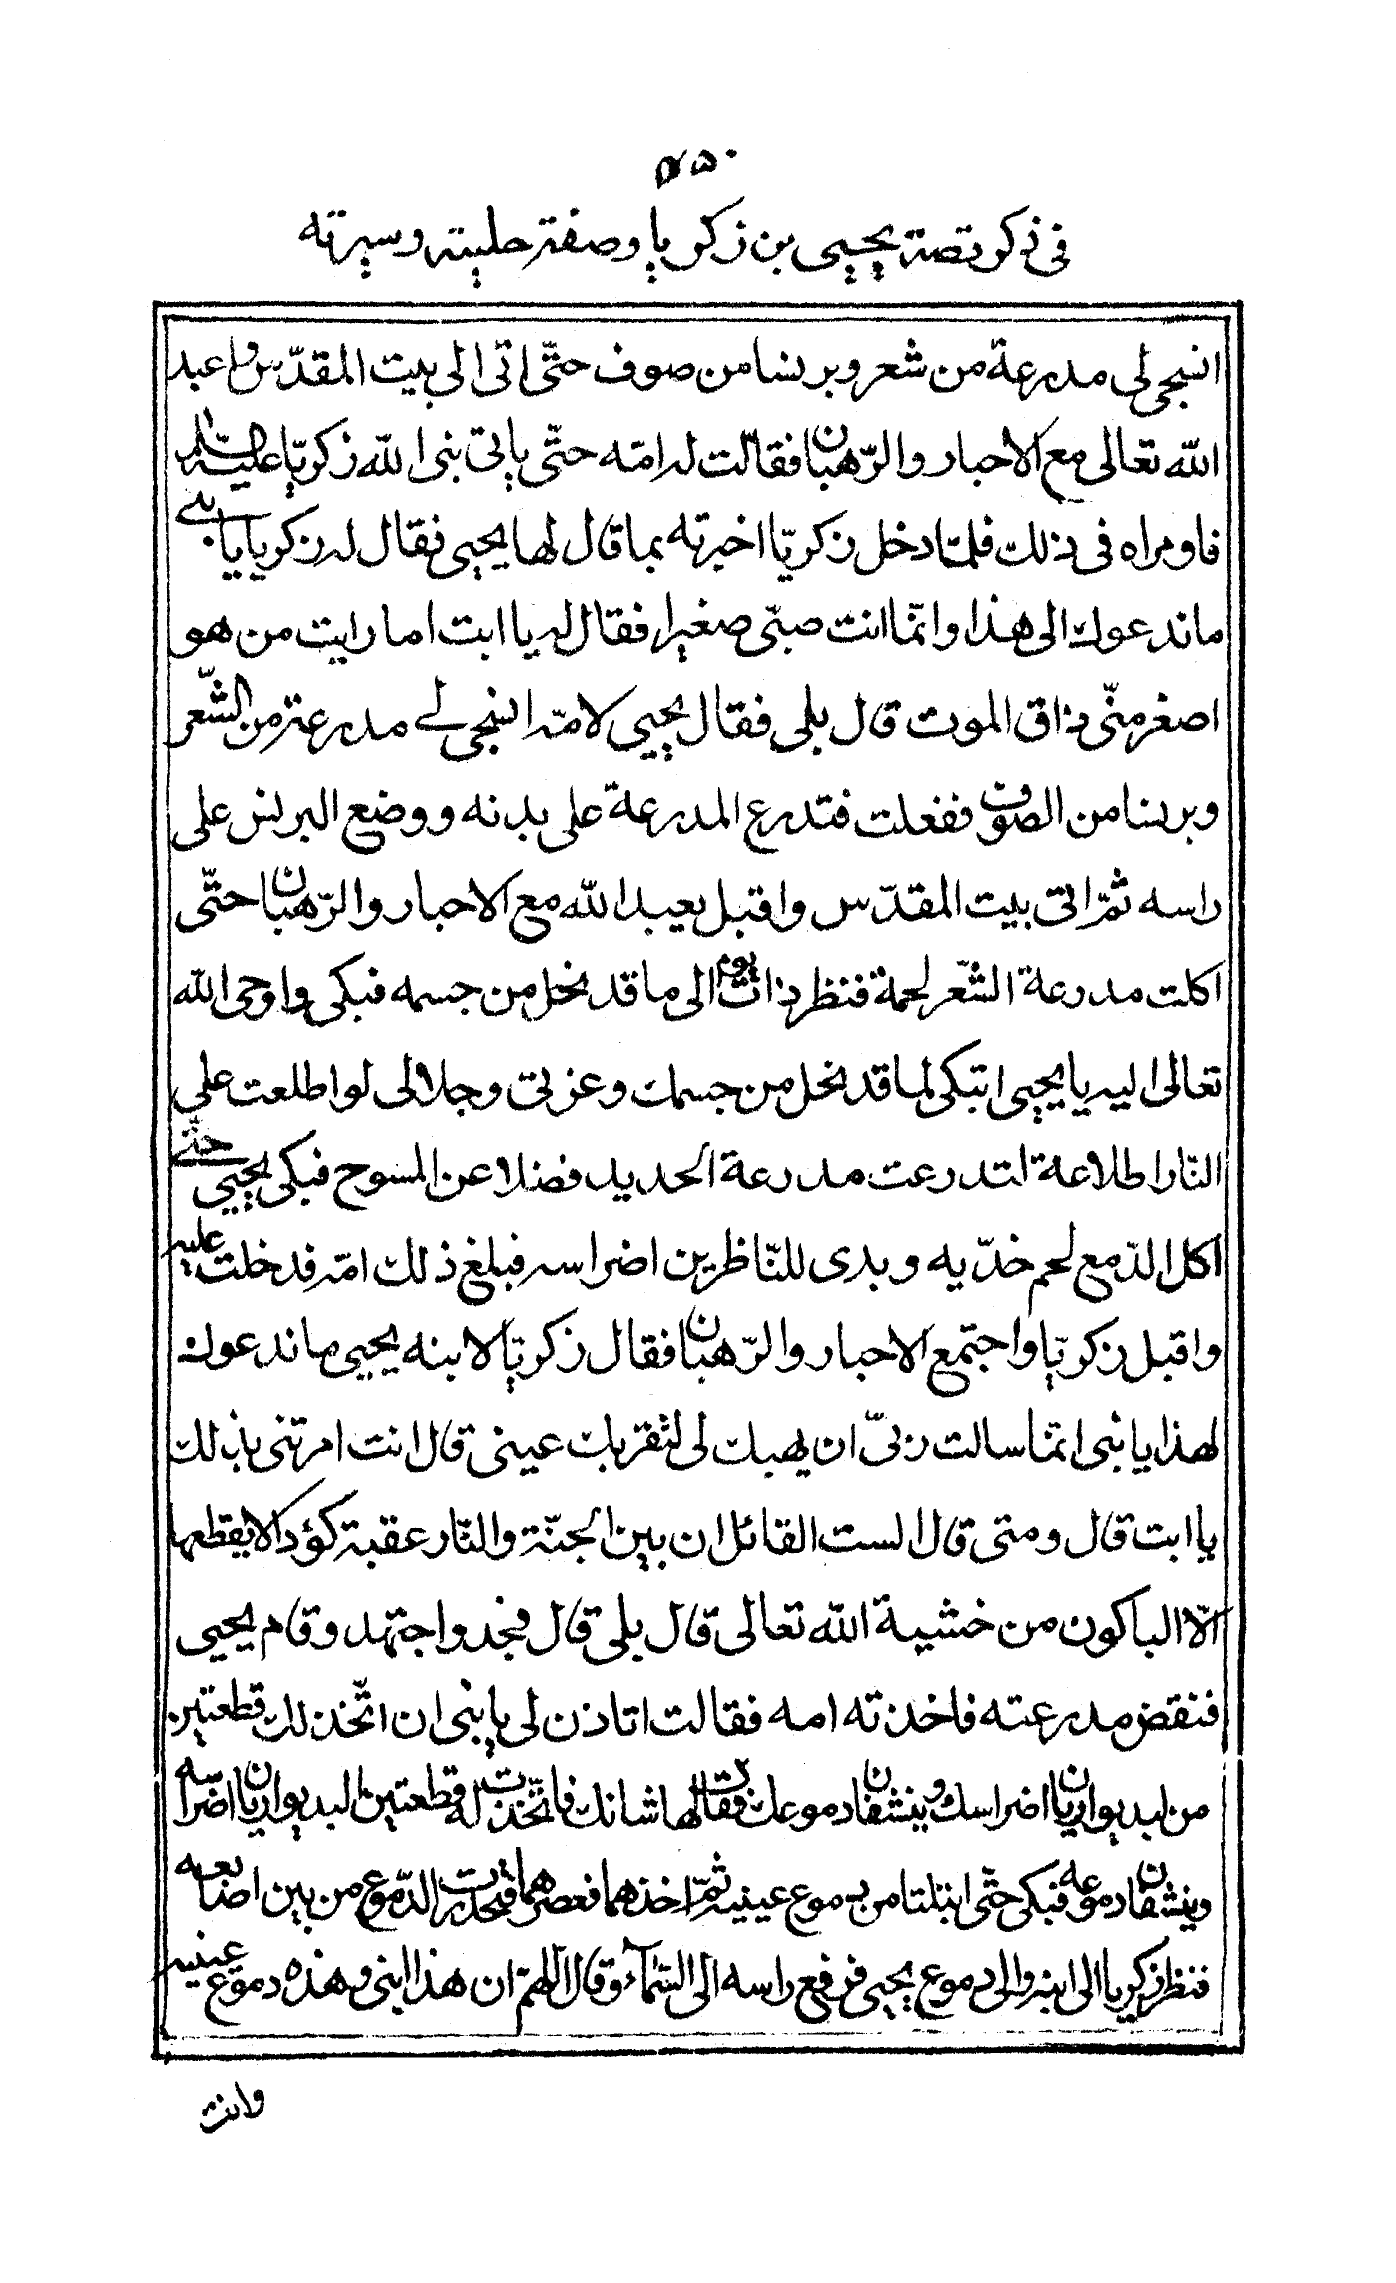 ٤٥٠
في ذكر قصة يحيى بن زكريا وصفة حليته وسيرته
انسجي لي مدرعة من شعر وبرنسا من صوف حتّى اتي الى بيت المقدّس واعبد
الله تعالى مع الاحبار والرّهبان فقالت له امّه حتّى ياتي نبي الله زكريّا عليه السّلم
فاومراه في ذلك فلمّا دخل زكريّا اخبرته بما قال لها يحيى فقال له زكريا يابني
ما ندعوك الى هذا وانّما انت صبيّ صغير فقال له يا ابت اما رايت من هو
اصغر منّي ذاق الموت قال بلى فقال يحيى لامّه انسجي لي مدرعة من الشّعر
وبرنسا من الصّوف ففعلت فتدرع المدرعة على بدنه ووضع البرنس على
راسه ثمّ اتى بيت المقدّس واقبل يعبد الله مع الاحبار والرّهبان حتّى
اكلت مدرعة الشّعر لحمة فنظر ذات يوم الى ما قد نحل من جسمه فبكى واوحى الله
تعالى اليه يا يحيى اتبكى لما قد نحل من جسمك وعزتي وجلالى لو اطلعت على
النّار اطلاعة لتدرعت مدرعة الحديد فضلا عن المسوح فبكى يحيى حتّى
اكل الدّمع لحم خدّيه وبدى للنّاظرين اضراسه فبلغ ذلك امّه فدخلت عليه
واقبل زكريّا واجتمع الاحبار والرّهبان فقال زكريّا لابنه يحيى ما ندعوك
لهذا يا بني انّما سالت ربّي ان يهبك لى لتقربك عيني قال انت امرتني بذلك
يا ابت قال ومتى قال الست القائل ان بين الجنّة والنّار عقبة كؤدا لا يقطعها
الّا الباكون من خشية الله تعالى قال بلى قال فجد واجتهد وقام يحيى
فنقض مدرعته فاخذته امه فقالت اتاذن لي يا بني ان اتّخذ لك قطعتين
من لبد يواريان اضراسك وينشفان دموعك فقال لها شانك فاتّخذت له قطعتين البد يواريان اضراسه
وينشفان دموعه فبكى حتّى ابتلتا من دموع عينيه ثمّ اخذهما فعصرهما فتحدرت الدّموع من بين اصابعه
فنظر زكريا الى ابنه والى دموع يحيى فرفع راسه الى السّماء وقال اللهمّ ان هذا ابني وهذه دموع عينيه
وانت